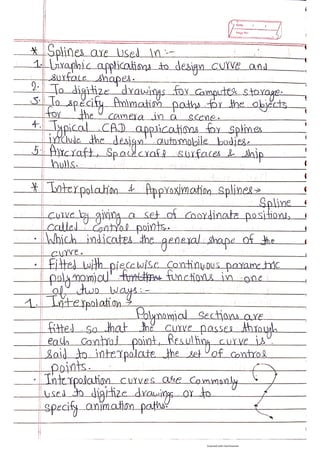 * Splines are Used In :-
1. Graphic applications to design curve and
surface shapes.
2. To digitize drawings for computer storage.
3. To specify Animation paths for the objects
for the camera in a scene.
4. Typical CAD applications for splines
include the design automobile bodies.
5. Aircraft, Spacecraft surfaces & ship
hulls.
* Interpolation & Approximation splines →
Spline
curve by giving a set of coordinate positions,
called control points.
• Which indicates the general shape of the
curve.
• Fitted with piecewise continuous parametric
polynomial functions in one
of two ways :-
1. Interpolation →
Polynomial sections are
fitted so that the curve passes through
each control point, Resulting curve is
said to interpolate the set of control
points.
• Interpolation curves are commonly
used to digitize drawings or to
specify animation paths.